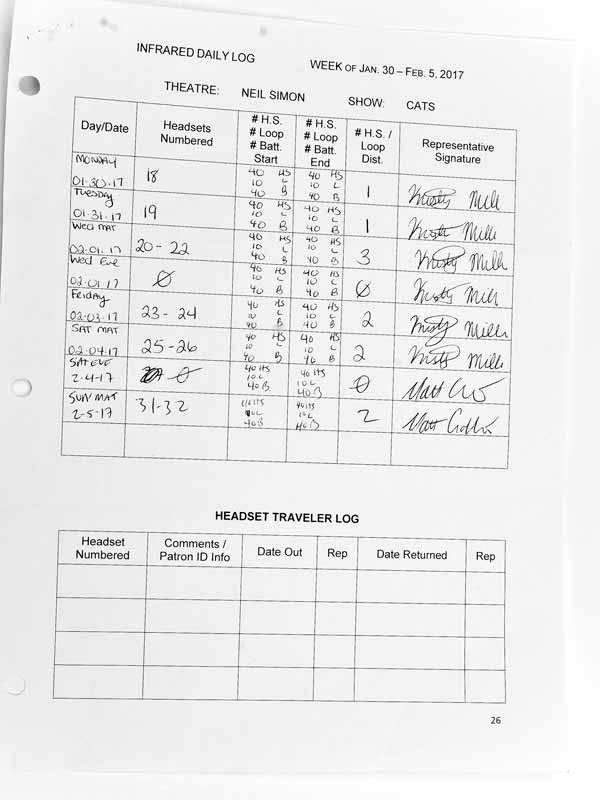 INFRARED DAILY LOG WEEK OF JAN. 30 – FEB. 5, 2017
THEATRE: NEIL SIMON SHOW: CATS
Day/Date
Headsets
Numbered
# H.S.
# Loop
# Batt.
Start
# H.S.
# Loop
# Batt.
End
# H.S. /
Loop
Dist.
Representative
Signature
MONDAY
01.30.17
18
40 HS
10 L
40 B
40 HS
10 L
40 B
1
Kristy Mille
TUESDAY
01.31.17
19
40 HS
10 L
40 B
40 HS
10 L
40 B
1
Mille
WED MAT
02.01.17
20-22
40 HS
10 L
40 B
40 HS
10 L
40 B
3
Kristy Mille
Wed Eve
02.01.17
Ø
40 HS
10 L
40 B
40 HS
10 L
40 B
Ø
Kristy
Friday
02.03.17
23-24
40 HS
10 L
40 B
40 HS
10 L
40 B
2
Kristy Mille
SAT MAT
02.04.17
25-26
40 HS
10 L
40 B
40 HS
10 L
40 B
2
Mille
SAT EVE
2-4-17
Ø
40 HS
10 L
40 B
40 HS
10 L
40 B
Ø
Matt
SUN MAT
2-5-17
31-32
40 HS
10 L
40 B
40 HS
10 L
40 B
2
Matt
HEADSET TRAVELER LOG
Headset
Numbered
Comments /
Patron ID Info
Date Out
Rep
Date Returned
Rep
26